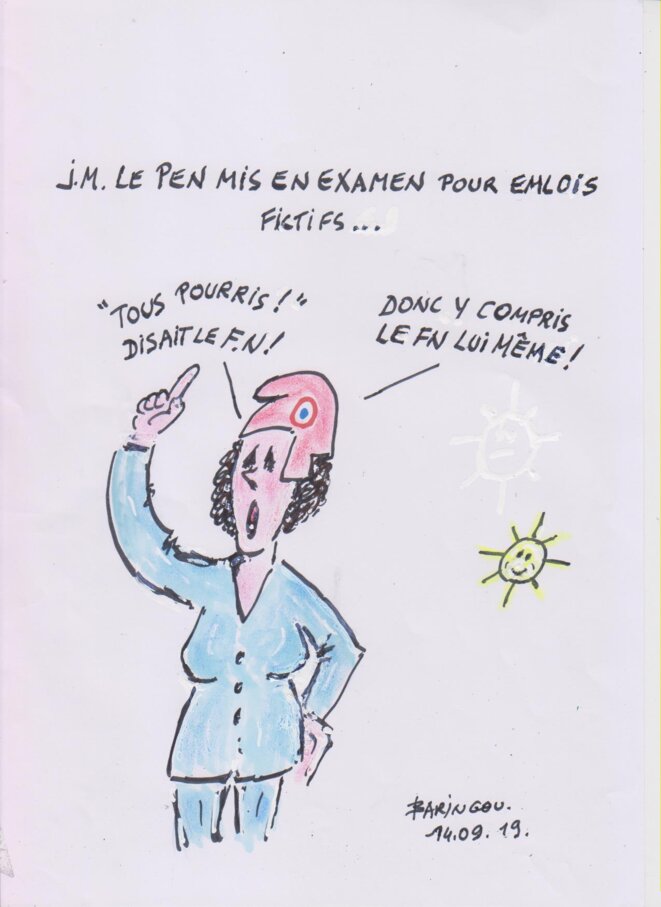 J.M. LE PEN MIS EN EXAMEN POUR EMLOIS
FICTIFS...
"TOUS POURRIS!"
DISAIT LE F.N!
DONC Y COMPRIS
LE FN LUI MÊME!
BARINGOU.
14.09.19.